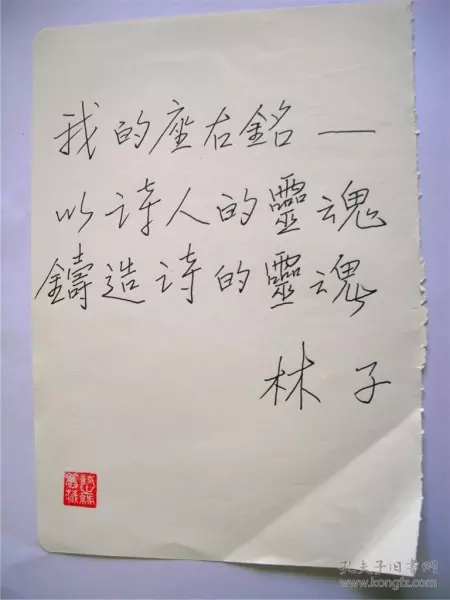 我的座右銘—
以诗人的靈魂
鑄造诗的靈魂
林子
孔夫子旧书网
www.kongfz.com